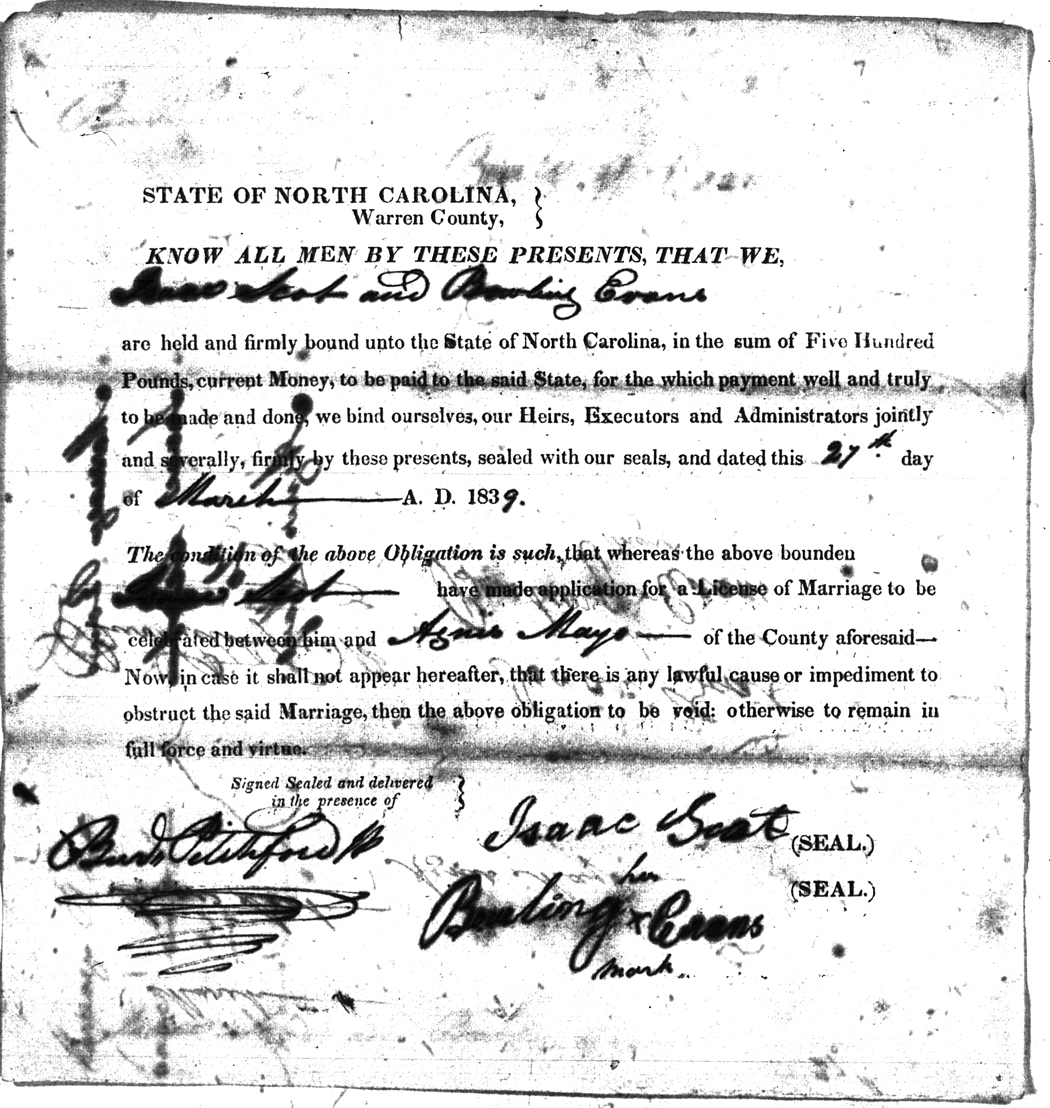 STATE OF NORTH CAROLINA,
Warren County,
KNOW ALL MEN BY THESE PRESENTS, THAT WE,
Isaac Scot and Bowling Evans
are held and firmly bound unto the State of North Carolina, in the sum of Five Hundred
Pounds, current Money, to be paid to the said State, for the which payment well and truly
to be made and done, we bind ourselves, our Heirs, Executors and Administrators jointly
and severally, firmly by these presents, sealed with our seals, and dated this 27th day
of March A. D. 1839.
The condition of the above Obligation is such, that whereas the above bounden
Isaac Scot have made application for a License of Marriage to be
celebrated between him and Agnis Mayo of the County aforesaid—
Now, in case it shall not appear hereafter, that there is any lawful cause or impediment to
obstruct the said Marriage, then the above obligation to be void: otherwise to remain in
full force and virtue.
Signed Sealed and delivered
in the presence of
Isaac Scot (SEAL.)
Pitchford
his (SEAL.)
Bowling x Evans
mark